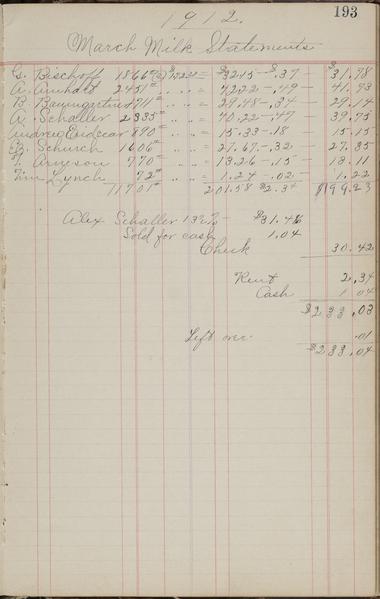 193
1912.
March Milk Statements
G. Bischoff 1866 # @ $1.72 1/2 = $32.15 - $.37 - $31.78
A. Amhalt 2451 # " " = 42.22 - .49 - 41.73
B. Baumgartner 1711 # " " = 29.48 - .34 - 29.14
A. Schaller 2335 # " " = 40.22 - .47 - 39.75
890 # " " = 15.33 - .18 15.15
Schurch 1606 # " " = 27.67 - .32 - 27.35
Arneson 770 # " " = 13.26 - .15 - 13.11
Tim Lynch 72 # " " = 1.24 - .02 - 1.22
11701 # 201.58 $2.34 $199.23
Alex Schaller $31.46
Sold for cash 1.04
Check 30.42
Rent 2.34
Cash 1.04
$233.03
Left over .01
$233.04